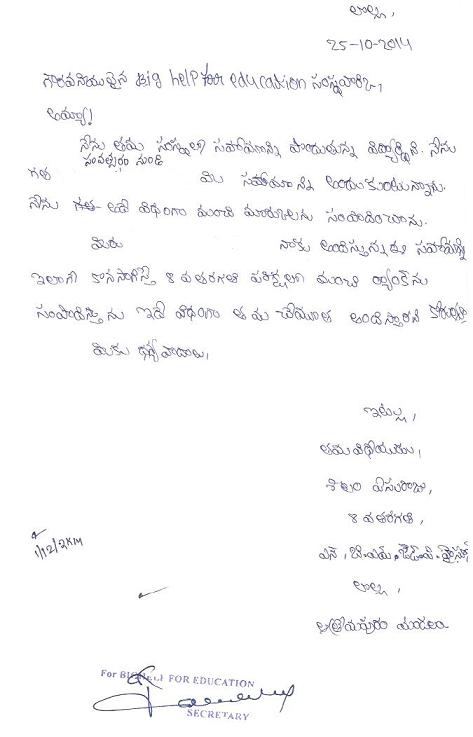 లొల్ల,
25-10-2014
గౌరవనియులైన Big help for education సంస్థవారికి,
అయ్యా!
నేను తమ సంస్థలో సహాయాన్ని పొందుతున్న విద్యార్థిని. నేను
గత సంవత్సరం నుండి మీ సహాయాన్ని అందుకుంటున్నాను.
నేను గత అదే విధంగా మంచి మార్కులను సంపాదించాను.
మీరు నాకు అందిస్తున్న ఈ సహాయాన్ని
ఇలాగే కొనసాగిస్తే 8 వ తరగతి పరిక్షలలో మంచి ర్యాంక్ ను
సంపాదిస్తాను ఇదే విధంగా తమ చేయూత అందిస్తారని కోరుతున్నా
మీకు ధన్యవాదాలు,
ఇట్లు,
తమ విధేయుడు,
శీలం ఏసురాజు,
8 వ తరగతి,
ఎన్. బి.ఎమ్. జెడ్.పి. హైస్కూల్
లొల్ల,
ఆత్రేయపురం మండలం
For BIG HELP FOR EDUCATION
SECRETARY